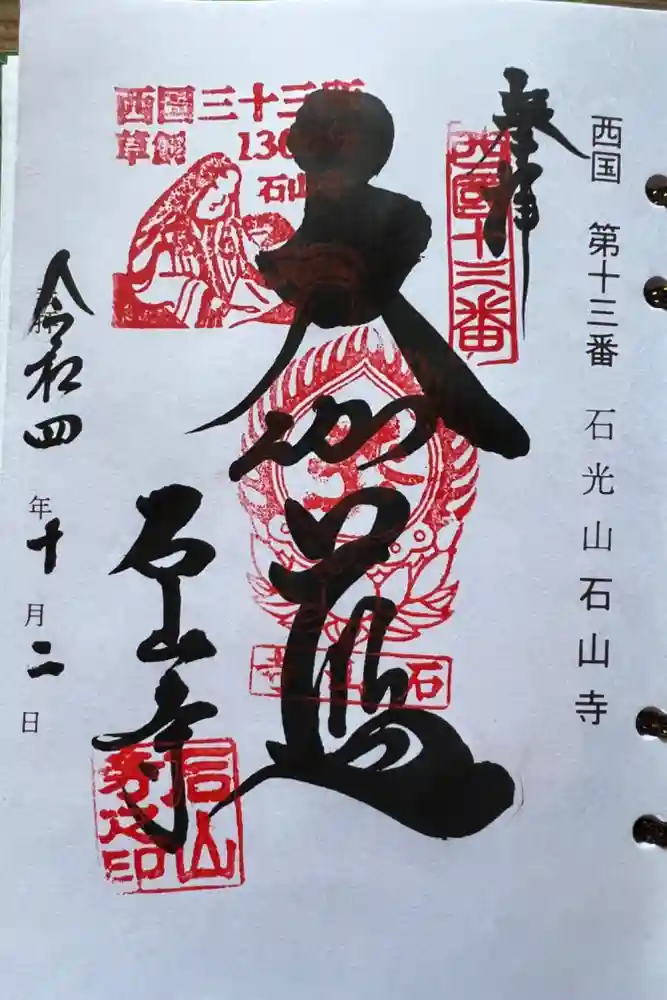 西国 第十三番 石光山石山寺
奉拝
西國十三番
大伽藍
西國三十三所
草創 1300年
石山寺
石山寺
石山寺
石山寺之印
令和四年十月二日